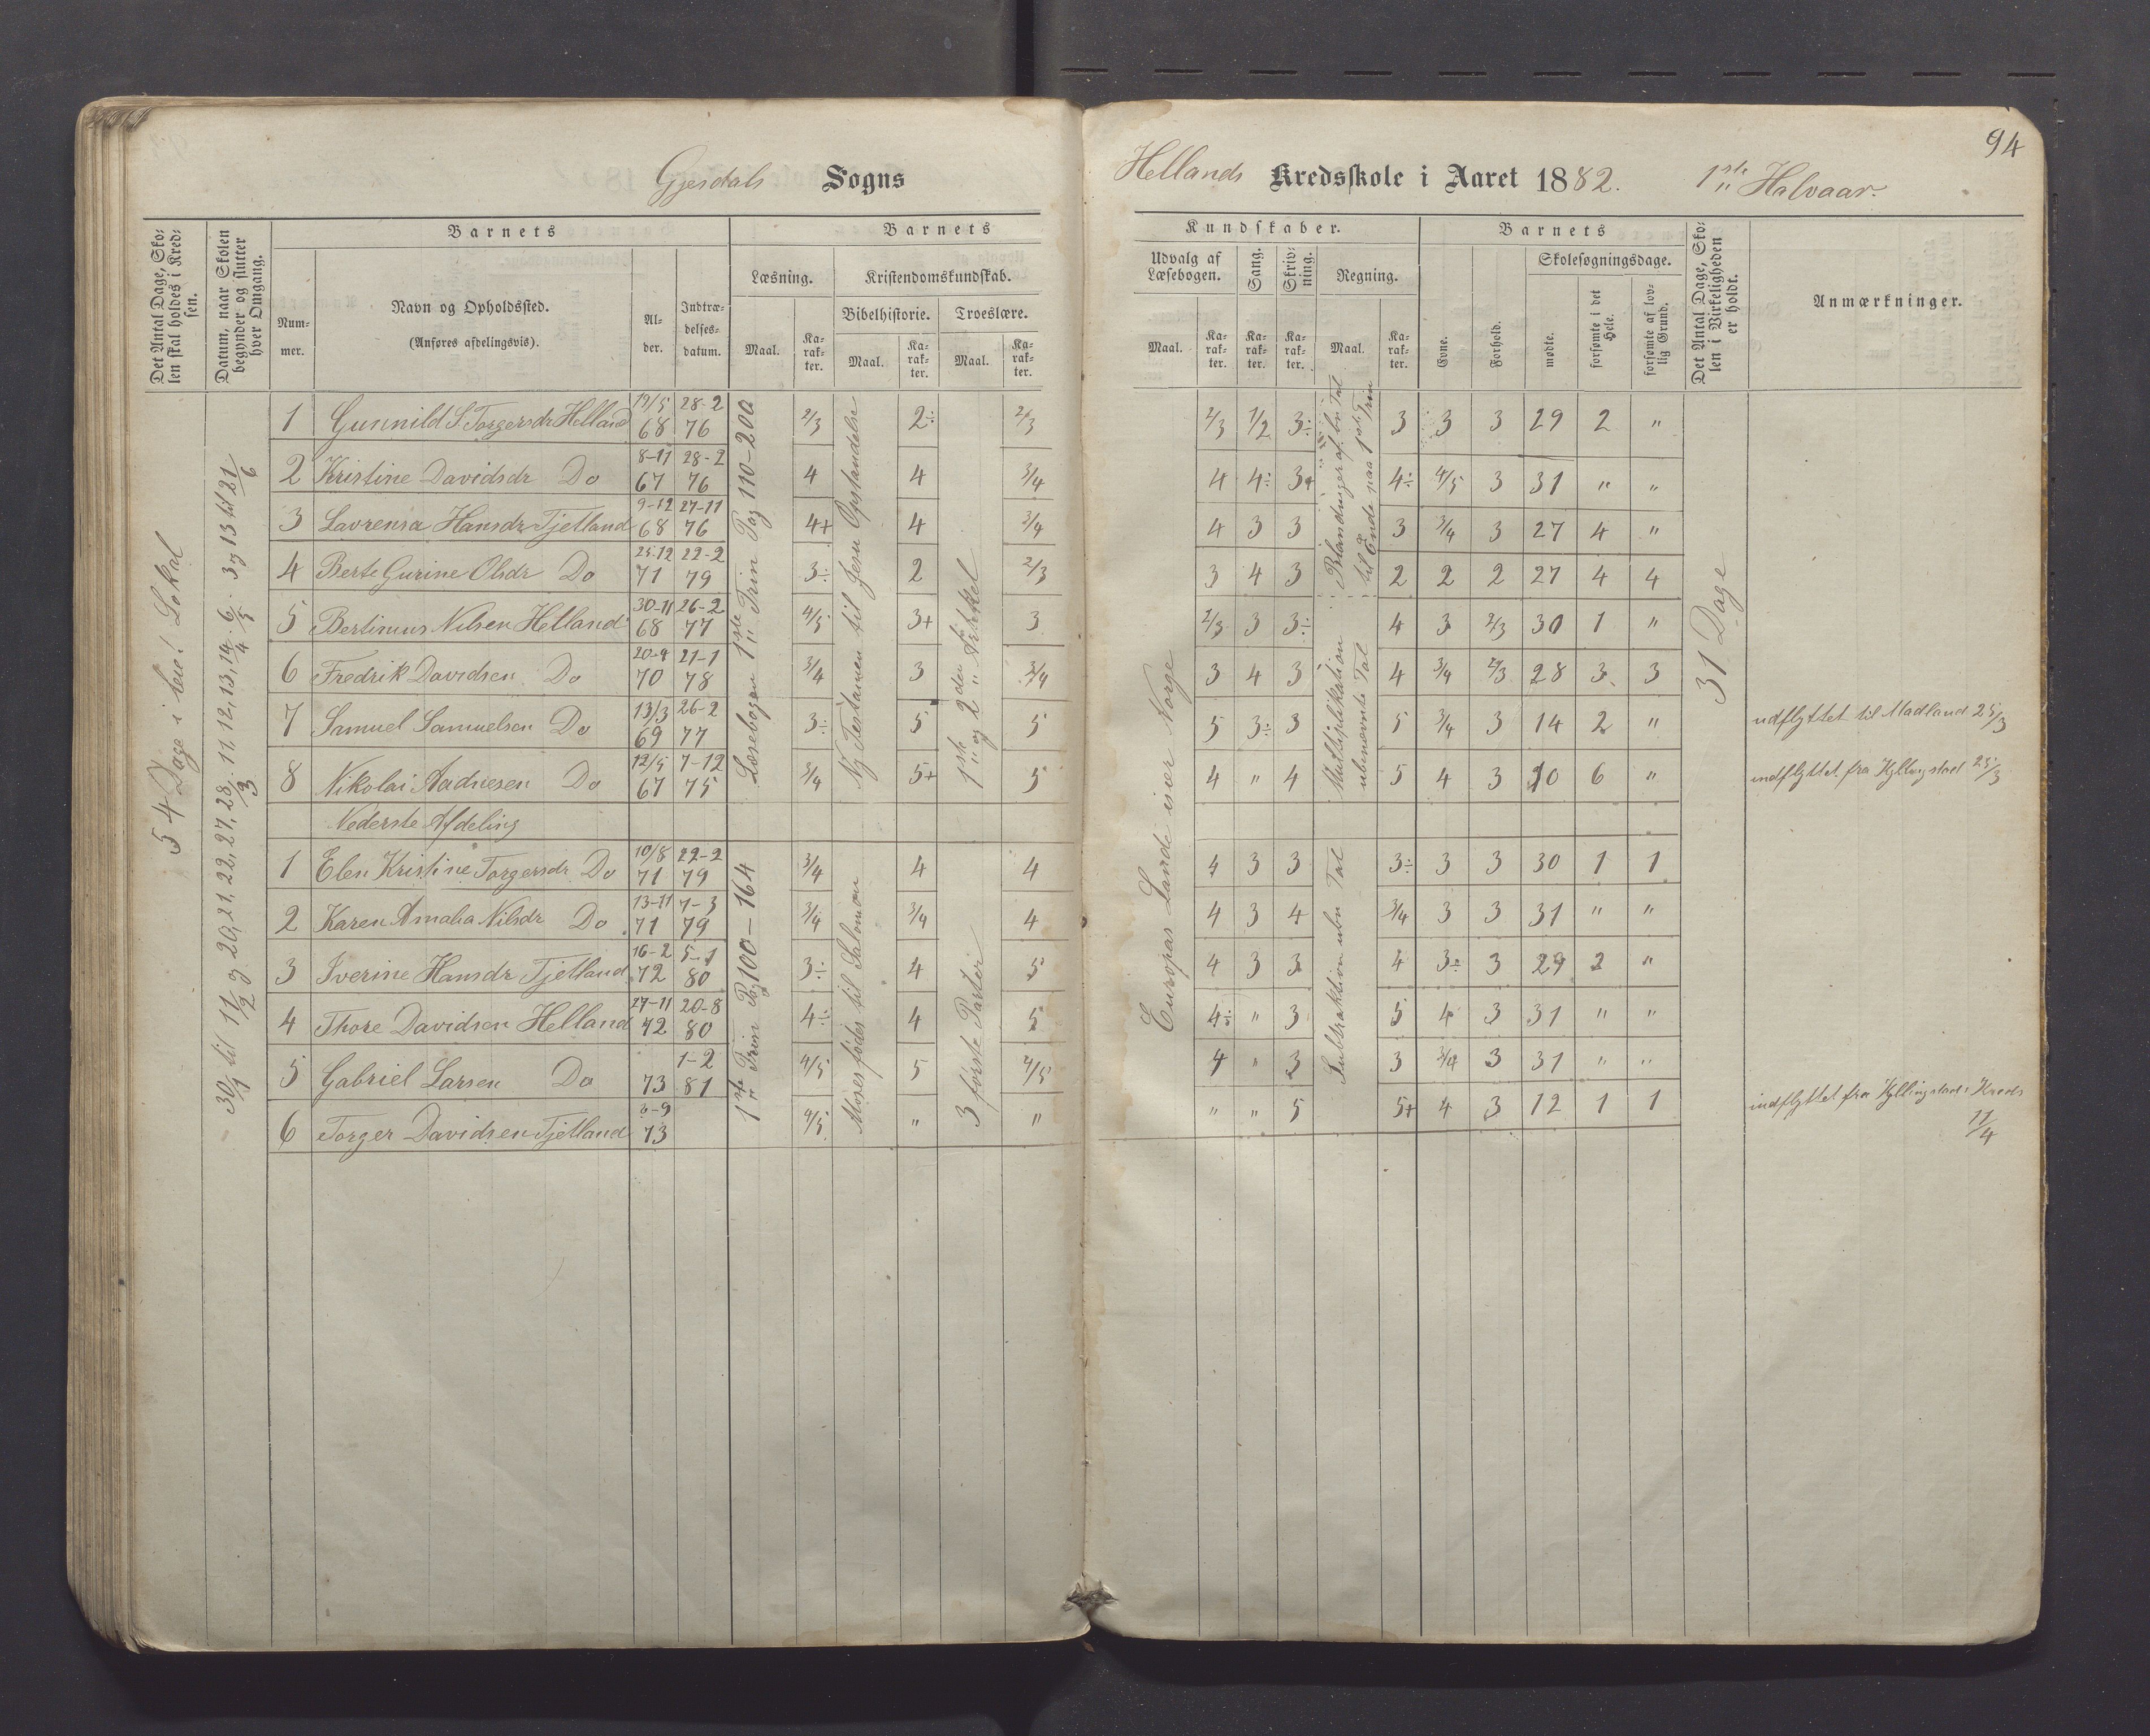 94
Gjesdals Sogns
Hellands Kredsskole i Aaret 1882. 1ste Halvaar.
Det Antal Dage, Sko-
len skal holdes i Kred-
sen.
Datum, naar Skolen
begynder og slutter
hver Omgang.
Barnets
Num-
mer.
Navn og Opholdssted.
(Anføres afdelingsvis).
Al-
der.
Indtræ-
delses-
datum.
Barnets
Læsning.
Maal.
Ka-
rak-
ter.
Kristendomskundskab.
Bibelhistorie.
Maal.
Ka-
rak-
ter.
Troeslære.
Maal.
Ka-
rak-
ter.
Kundskaber.
Udvalg af
Læsebogen.
Maal.
Ka-
rak-
ter.
Sang.
Ka-
rak-
ter.
Skriv-
ning.
Ka-
rak-
ter.
Regning.
Maal.
Ka-
rak-
ter.
Barnets
Evne.
Forhold.
Skolesøgningsdage.
mødte.
forsømte i det
Hele.
forsømte af lov-
lig Grund.
Det Antal Dage, Sko-
len i Virkeligheden
er holdt.
Anmærkninger.
54 Dage i leiet Lokal
30/1 til 11/2 og 20, 21, 22, 27, 28/3. 11, 12, 13, 14/4. 6/5. 3 og 13 til 21/6
Læsebogen 1ste Trin Pag 110-200
Ny Testamen til Jesu Opstandelse
1ste og 2den Artikel
Europas Lande især Norge
Blandinger af bn Tal
til Ende paa 1ste Trin
Multiplikation
ubenævnte Tal
31 Dage
1 Gunnild S Torgersdr Helland 19/5 68 28-2 76 2/3 2÷ 2/3 2/3 1/2 3÷ 3 3 3 29 2 "
2 Kristine Davidsdr Do 8-11 67 28-2 76 4 4 3/4 4 4÷ 3+ 4÷ 4/5 3 31 " "
3 Lavrensa Hansdr Tjetland 9-12 68 27-11 76 4+ 4 3/4 4 3 3 3 3/4 3 27 4 "
4 Berte Gurine Olsdr Do 25-12 71 22-2 79 3÷ 2 2/3 3 4 3 2 2 2 27 4 4
5 Bertinius Nilsen Helland 30-11 68 26-2 77 4/5 3+ 3 2/3 3 3÷ 4 3 2/3 30 1 "
6 Fredrik Davidsen Do 20-9 70 21-1 78 3/4 3 3/4 3 4 3 4 3/4 2/3 28 3 3
7 Samuel Samuelsen Do 13/3 69 26-2 77 3÷ 5 5 5 3÷ 3 5 3/4 3 14 2 " udflyttet til Madland 25/3
8 Nikolai Aadnesen Do 12/5 67 7-12 75 3/4 5+ 5 4 " 4 5 4 3 10 6 " indflyttet fra Kyllingstad 25/3
Nederste Afdeling
1ste Trin Pag 100-164
Moses fødes til Salomon
3 første Parter
Subtraktion ubn Tal
1 Elen Kristine Torgersdr Do 10/8 71 22-2 79 3/4 4 4 4 3 3 3÷ 3 3 30 1 1
2 Karen Amalia Nilsdr Do 13-11 71 7-3 79 3/4 3/4 4 4 3 4 3/4 3 3 31 " "
3 Iverine Hansdr Tjetland 16-2 72 5-1 80 3÷ 4 5 4 3 3 4 3÷ 3 29 2 "
4 Thore Davidsen Helland 27-11 72 20-8 80 4÷ 4 5 4÷ " 3 5 4 3 31 " "
5 Gabriel Larsen Do 73 1-2 81 4/5 5 4/5 4 " 3 3 3/4 3 31 " "
6 Torger Davidsen Tjetland 73 4/5 " " " " 5 5+ 4 3 12 1 1 indflyttet fra Kyllingstads Kreds
11/4